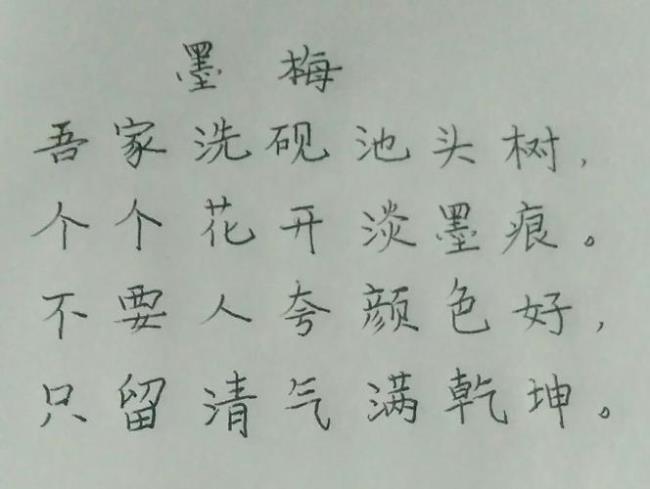 墨梅
吾家洗砚池头树,
个个花开淡墨痕。
不要人夸颜色好,
只留清气满乾坤。